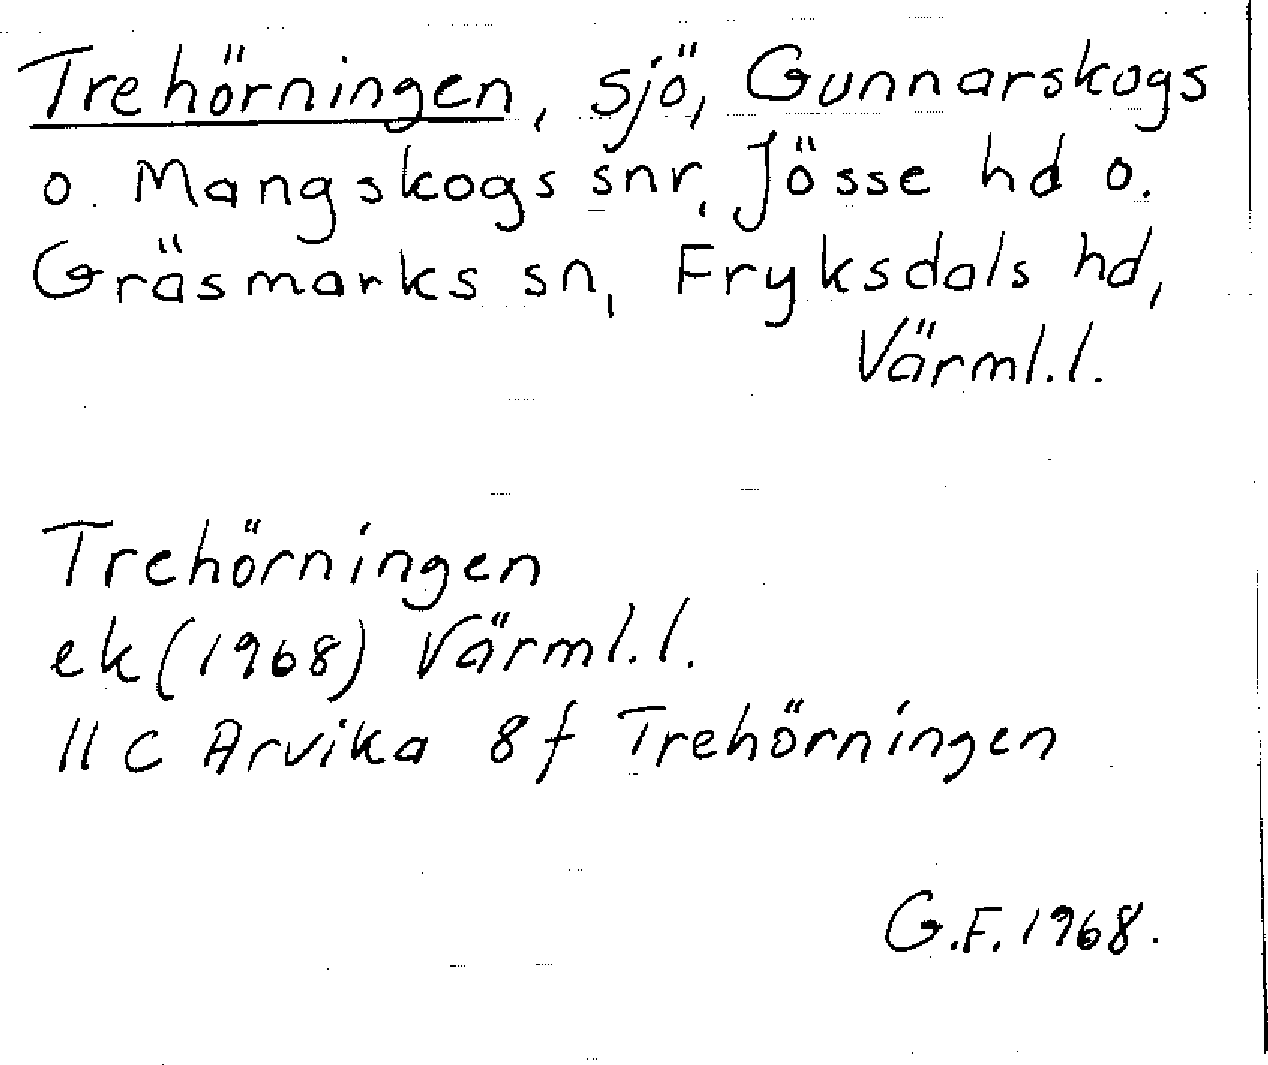 Trehörningen, sjö, Gunnarskogs
o. Mangskogs snr, Jösse hd o.
Gräsmarks sn, Fryksdals hd,
Värml.l.
Trehörningen
ek (1968) Värml.l.
11 C Arvika 8 f Trehörningen
G.F. 1968.